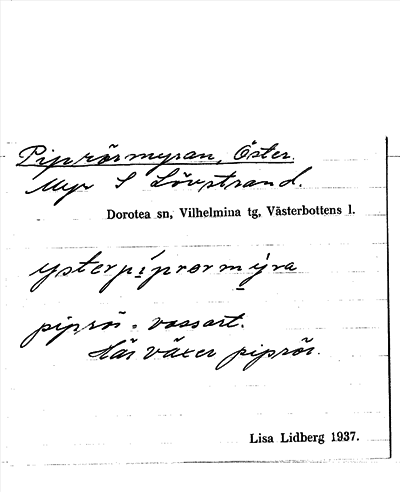 Piprörmyran, Öster.
Myr S Lövstrand.
Dorotea sn, Vilhelmina tg, Västerbottens l.
ysterpíprørmýra
piprör = vassart.
Här växer piprör.
Lisa Lidberg 1937.